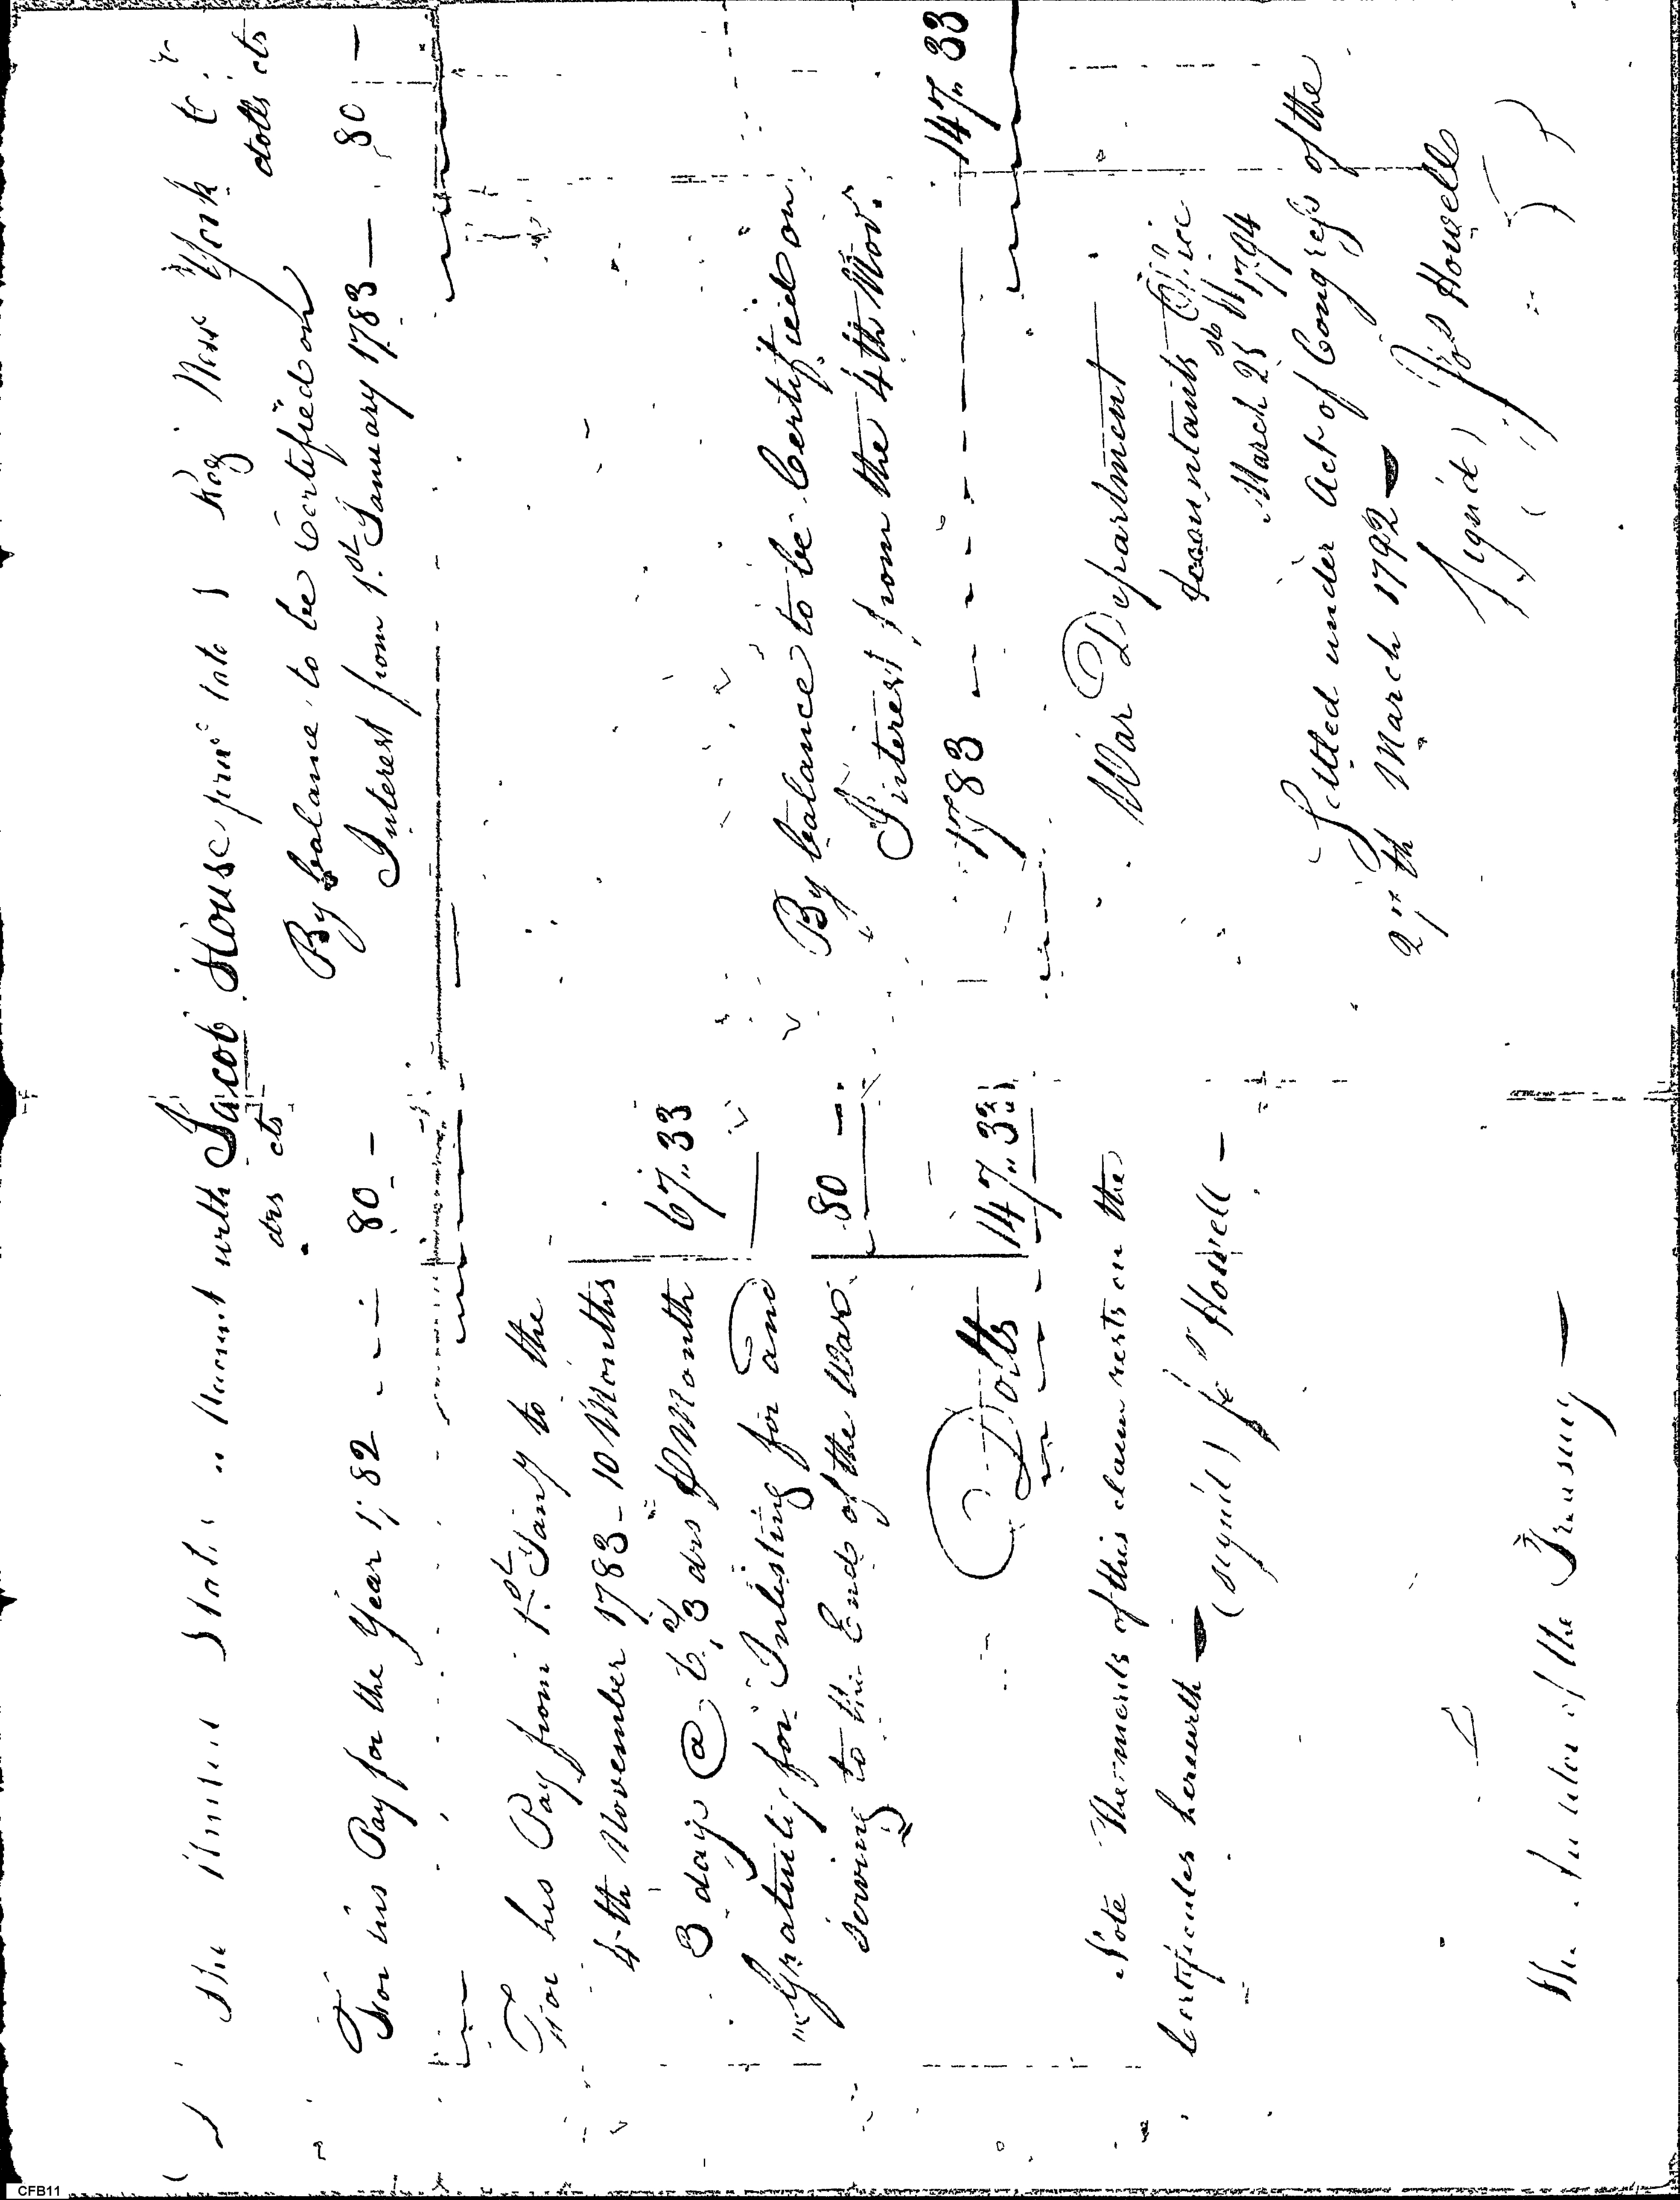 The United States Account with Jacob House Reg New York
drs cts
For his Pay for the Year 1782 - - - 80 -
For his Pay from 1st Jany to the
4th November 1783 - 10 Months
3 days @ 6 2/3 drs P Month
67"33
Gratuity for Inlisting for and
serving to the End of the War.
80 -
Dolls 147"33
Note The merits of this claim rests on the
Certificates herewith
(signd) Jos Howell -
The Auditor of the Treasury
dolls cts
By balance to be certified on
Interest from 1st January 1783 — 80 —
By balance to be Certified on
Interest from the 4th Nov.
1783 - - - - 147"33
War Department
Accountants Office
March 25th 1794
Settled under Act of Congress of the
27th March 1792
(signd) Jos Howell
CFB11